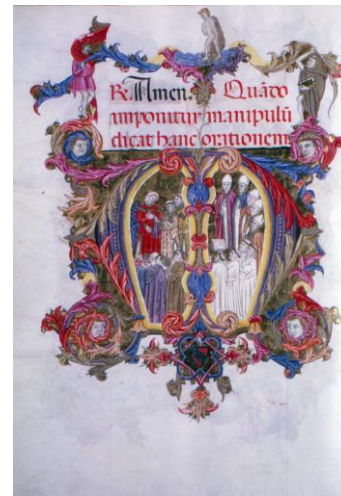 ℟. Amen. Quādo
imponitur manipulū
dicat hanc orationem
M